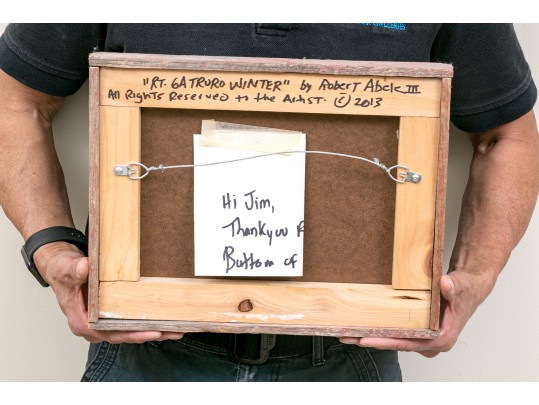 "RT. 6A TRURO WINTER" by Robert Abele III
All Rights Reserved to the Artist. © 2013
Hi Jim,
Thankyou F
Bottom of